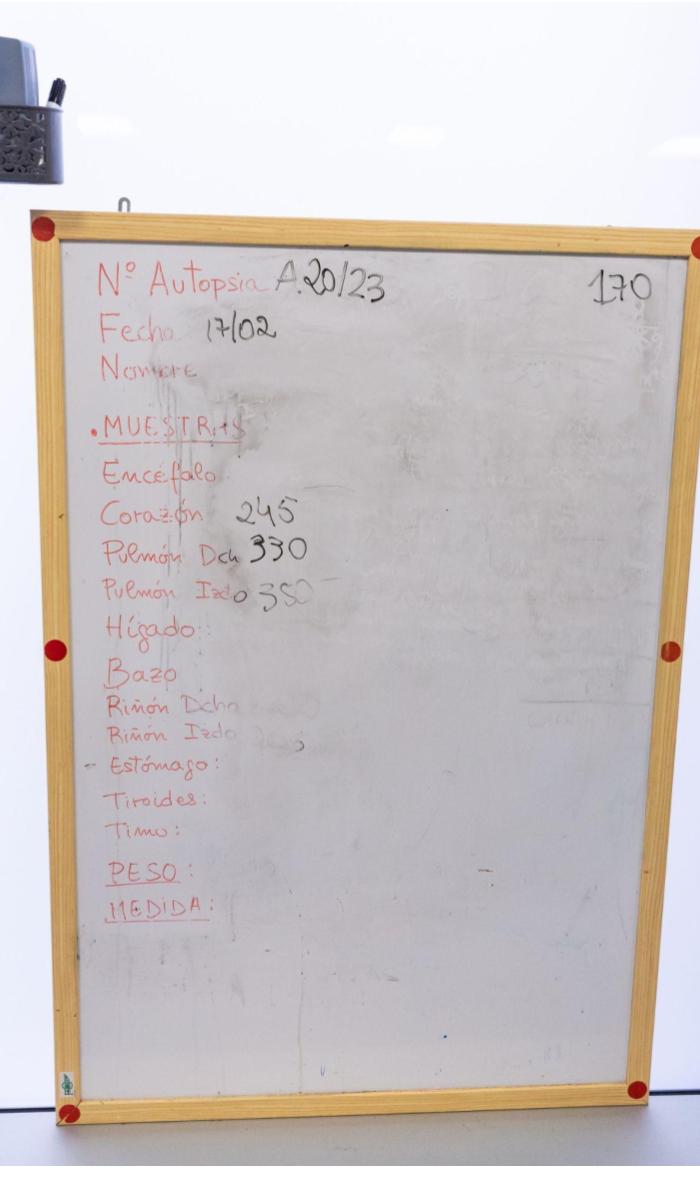 Nº Autopsia A.20/23 170
Fecha 17/02
Nombre
. MUESTRAS
Encéfalo
Corazón 245
Pulmón Dch 330
Pulmón Izdo 350
Hígado:
Bazo
Riñón Dcho
Riñón Izdo
- Estómago:
Tiroides:
Timo:
PESO:
MEDIDA: